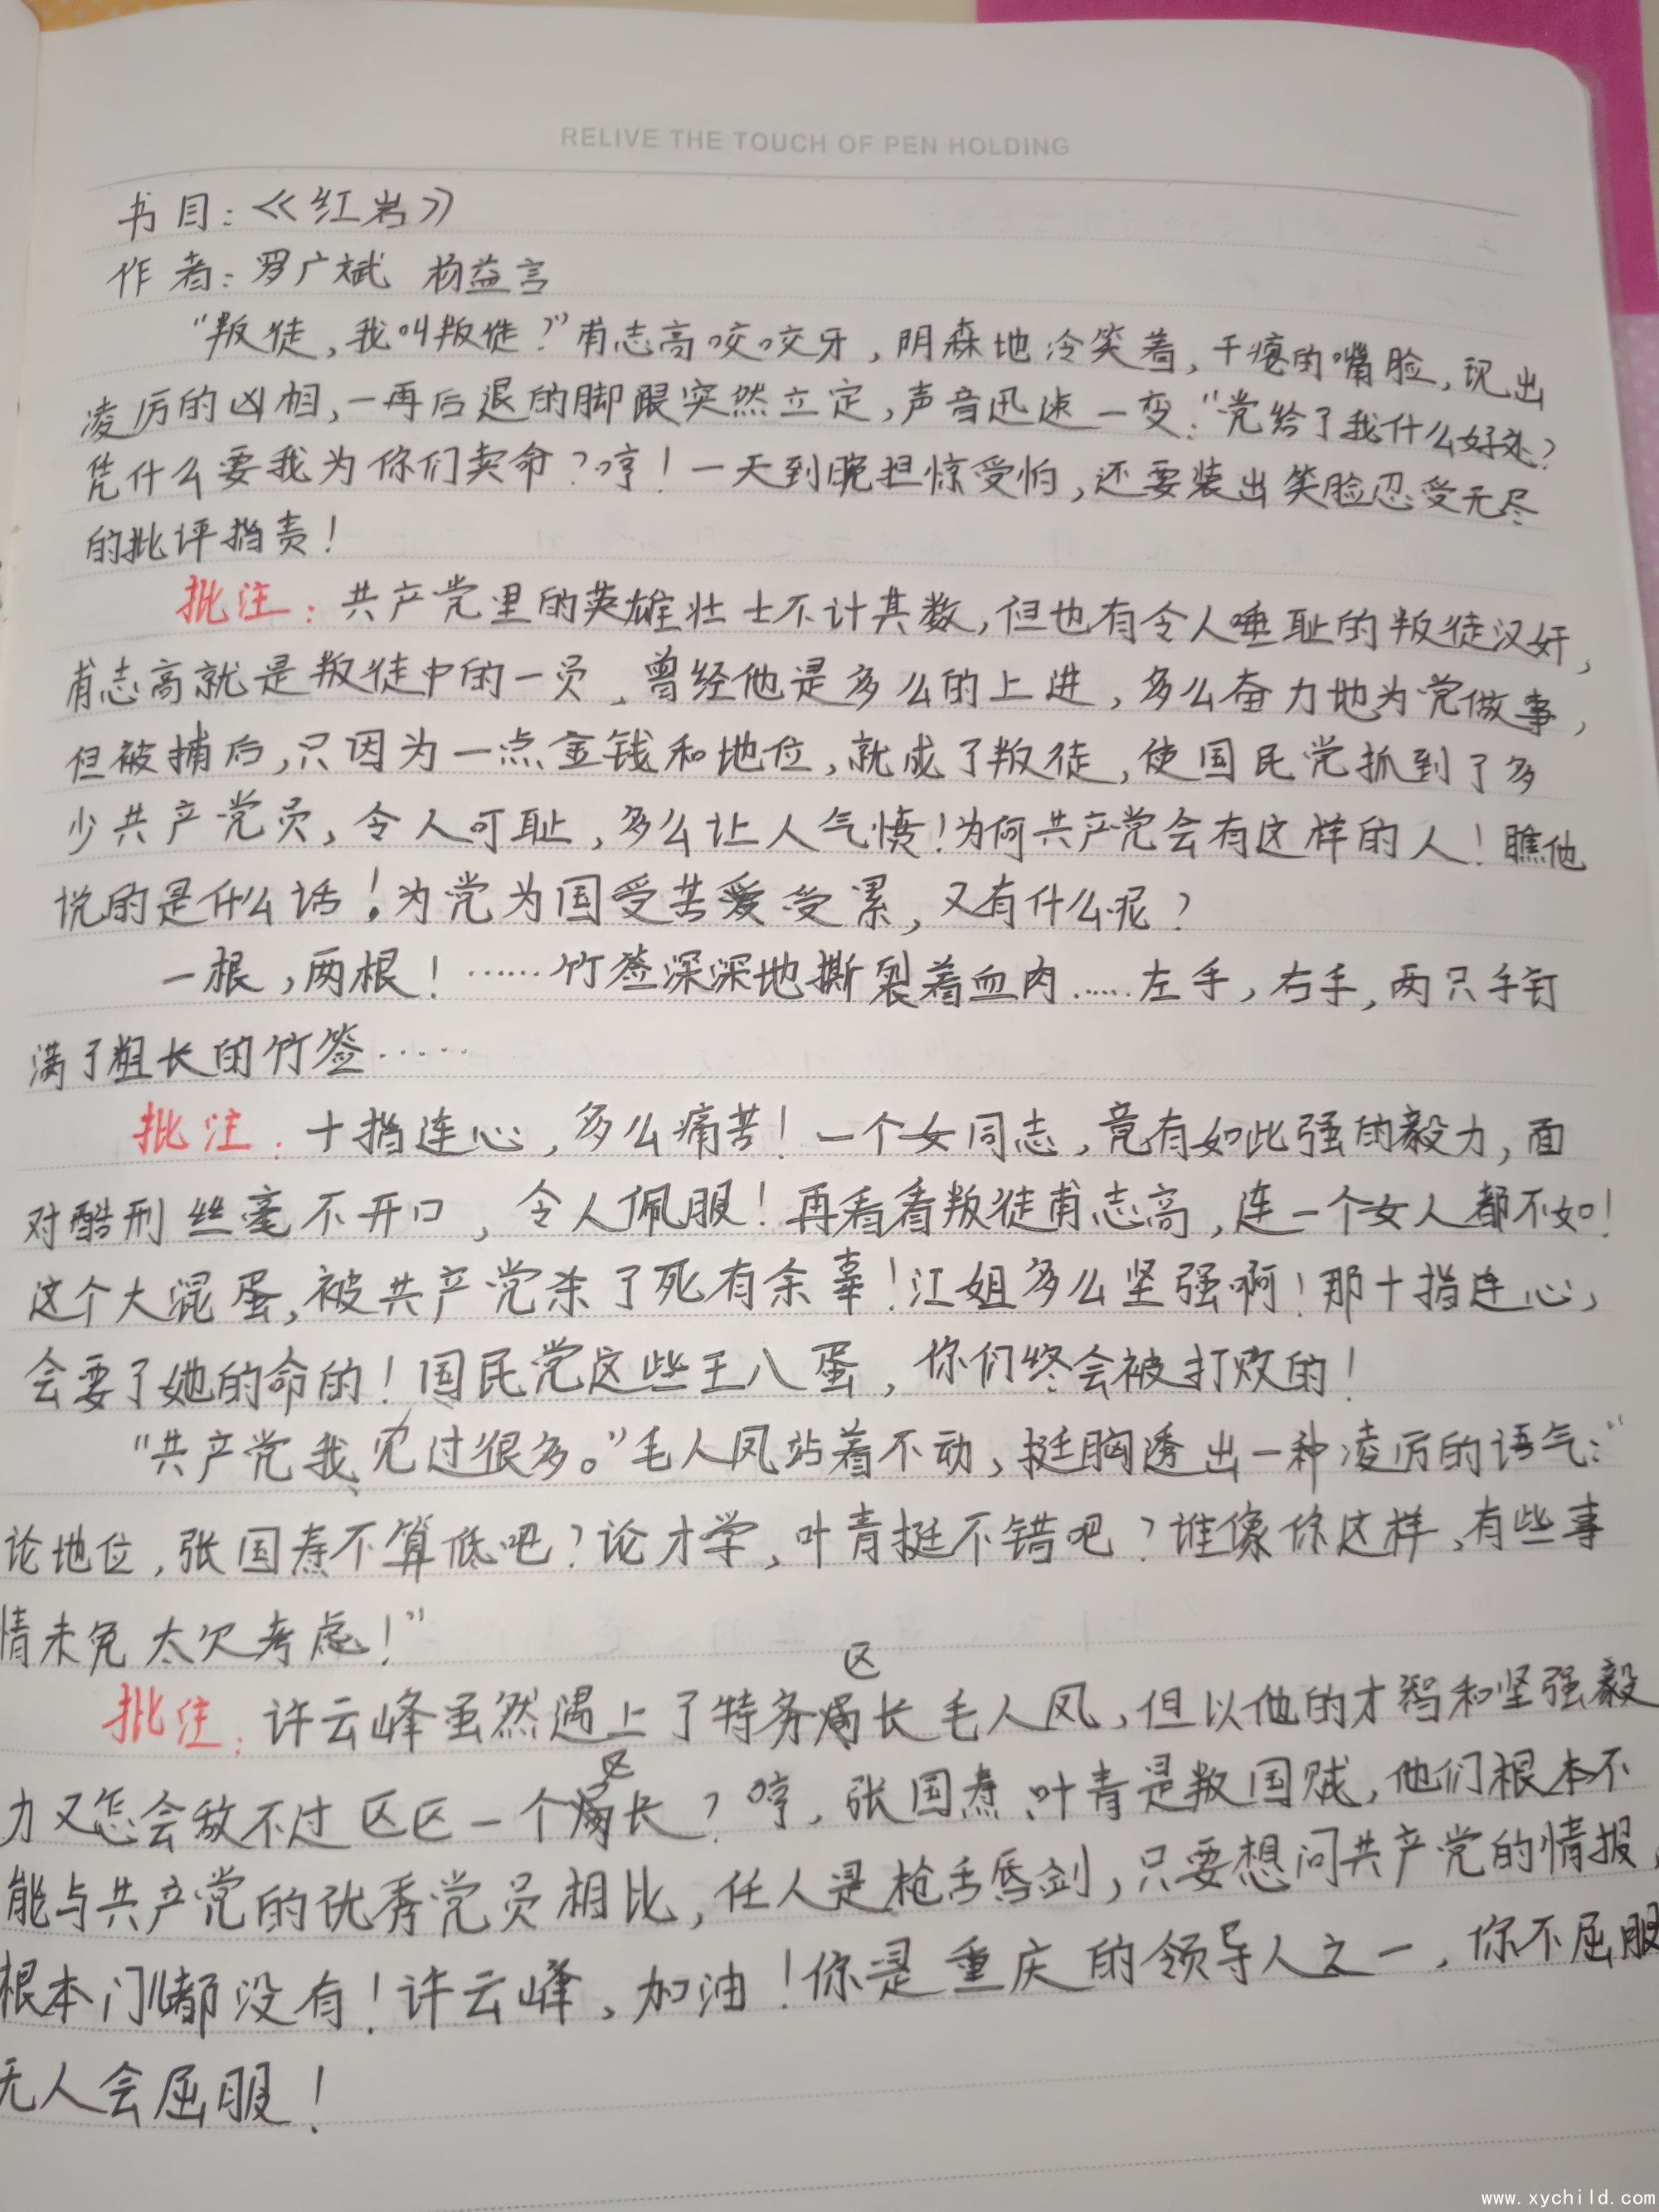 RELIVE THE TOUCH OF PEN HOLDING
书目:《红岩》
作者:罗广斌 杨益言
“叛徒,我叫叛徒?”甫志高咬咬牙,阴森地冷笑着,干瘪的嘴脸,现出
凌厉的凶相,一再后退的脚跟突然立定,声音迅速一变:“党给了我什么好处?
凭什么要我为你们卖命?哼!一天到晚担惊受怕,还要装出笑脸忍受无尽
的批评指责!
批注:共产党里的英雄壮士不计其数,但也有令人唾耻的叛徒汉奸,
甫志高就是叛徒中的一员、曾经他是多么的上进,多么奋力地为党做事,
但被捕后,只因为一点金钱和地位,就成了叛徒,使国民党抓到了多
少共产党员,令人可耻,多么让人气愤!为何共产党会有这样的人!瞧他
说的是什么话!为党为国受苦受累,又有什么呢?
一根,两根!……竹签深深地撕裂着血肉……左手,右手,两只手钉
满了粗长的竹签……
批注:十指连心,多么痛苦!一个女同志,竟有如此强的毅力,面
对酷刑丝毫不开口,令人佩服!再看看叛徒甫志高,连一个女人都不如!
这个大混蛋,被共产党杀了死有余辜!江姐多么坚强啊!那十指连心,
会要了她的命的!国民党这些王八蛋,你们终会被打败的!
“共产党我见过很多。”毛人凤站着不动,挺胸透出一种凌厉的语气:“
论地位,张国焘不算低吧?论才学,叶青挺不错吧?谁像你这样,有些事
情未免太欠考虑!”
批注:许云峰虽然遇上了特务区长毛人凤,但以他的才智和坚强毅
力又怎会敌不过区区一个区长?哼,张国焘、叶青是叛国贼,他们根本不
能与共产党的优秀党员相比,任人是枪舌唇剑,只要想问共产党的情报,
根本门儿都没有!许云峰,加油!你是重庆的领导人之一,你不屈服
无人会屈服!
www.xychild.com